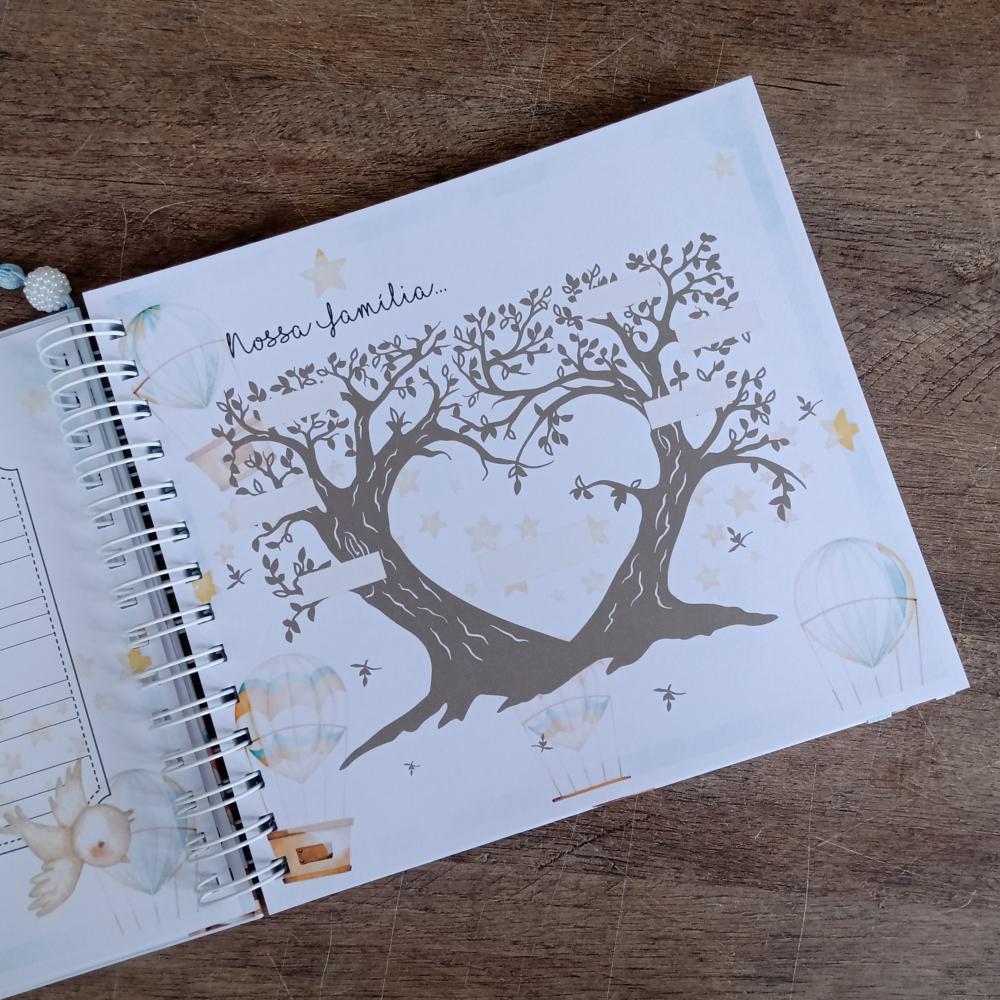 Nossa família...